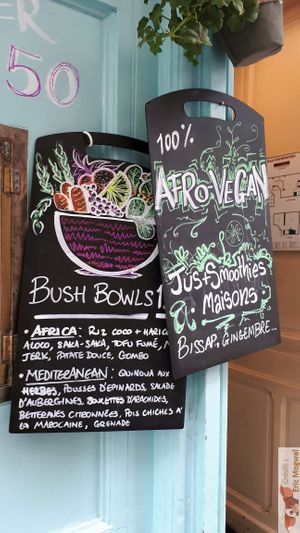 50
BUSH BOWLS
• AFRICA: RIZ COCO + HARIC
ALOCO, SAKA-SAKA, TOFU FUMÉ,
JERK, PATATE DOUCE, GOMBO
• MEDITERANEAN: QUINOUA AUX
HERBES, POUSSES D'ÉPINARDS, SALADE
D'AUBERGINES, BOULETTES D'ARACHIDES,
BETTERAVES CITRONNÉES, POIS CHICHES À
LA MAROCAINE, GRENADE
100%
AFRO-VEGAN
Jus + Smoothies
Maisons:
BISSAP, GINGEMBRE...
Eric Mogwai